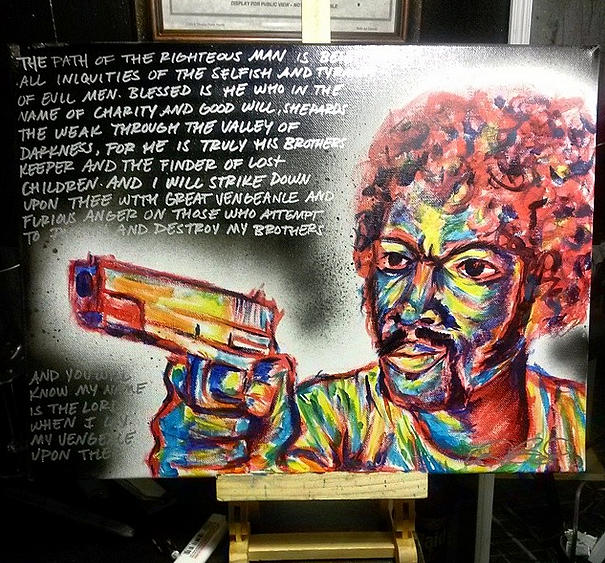 DISPLAY FOR PUBLIC VIEW
THE PATH OF THE RIGHTEOUS MAN IS
ALL INIQUITIES OF THE SELFISH AND
OF EVIL MEN. BLESSED IS HE WHO IN THE
NAME OF CHARITY AND GOOD WILL, SHEPARDS
THE WEAK THROUGH THE VALLEY OF
DARKNESS, FOR HE IS TRULY HIS BROTHERS
KEEPER AND THE FINDER OF LOST
CHILDREN. AND I WILL STRIKE DOWN
UPON THEE WITH GREAT VENGEANCE AND
FURIOUS ANGER ON THOSE WHO ATTEMPT
TO AND DESTROY MY BROTHERS
AND YOU
KNOW MY NAME
IS THE LORD
WHEN I
MY VENGENCE
UPON THE